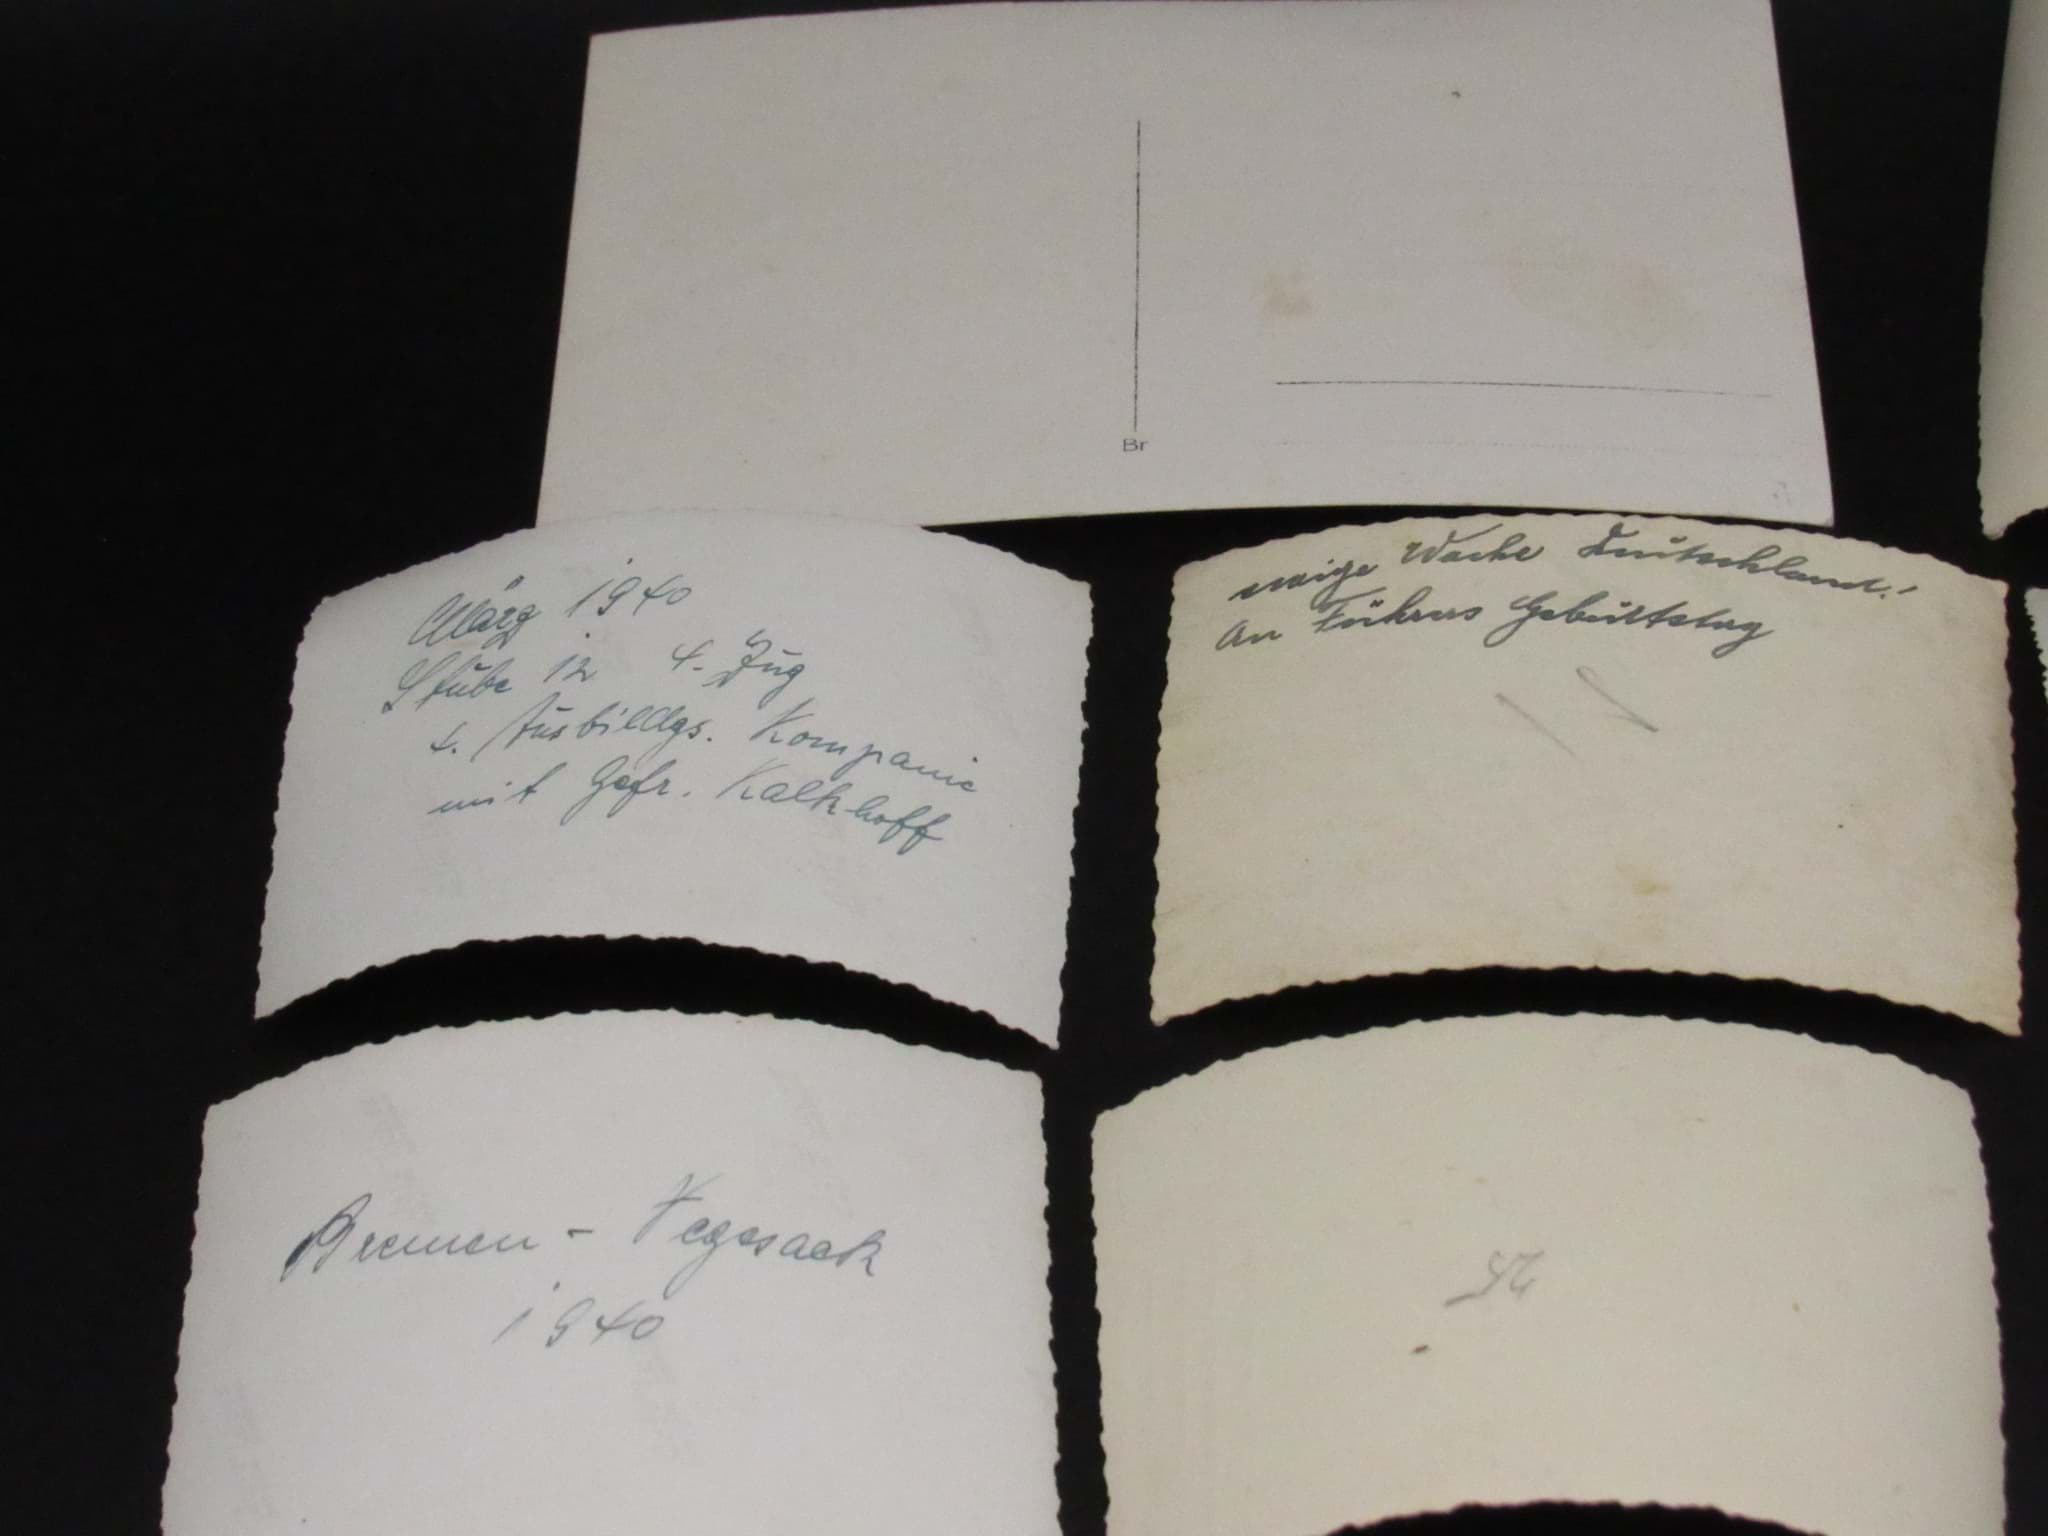 Br
März 1940
Stube 12 4. Zug
4. Ausbilldgs. Kompanie
mit Gefr. Kalkhoff
ewige Wache Deutschland!
An Führers Geburtstag
Bremen - Vegesack
1940